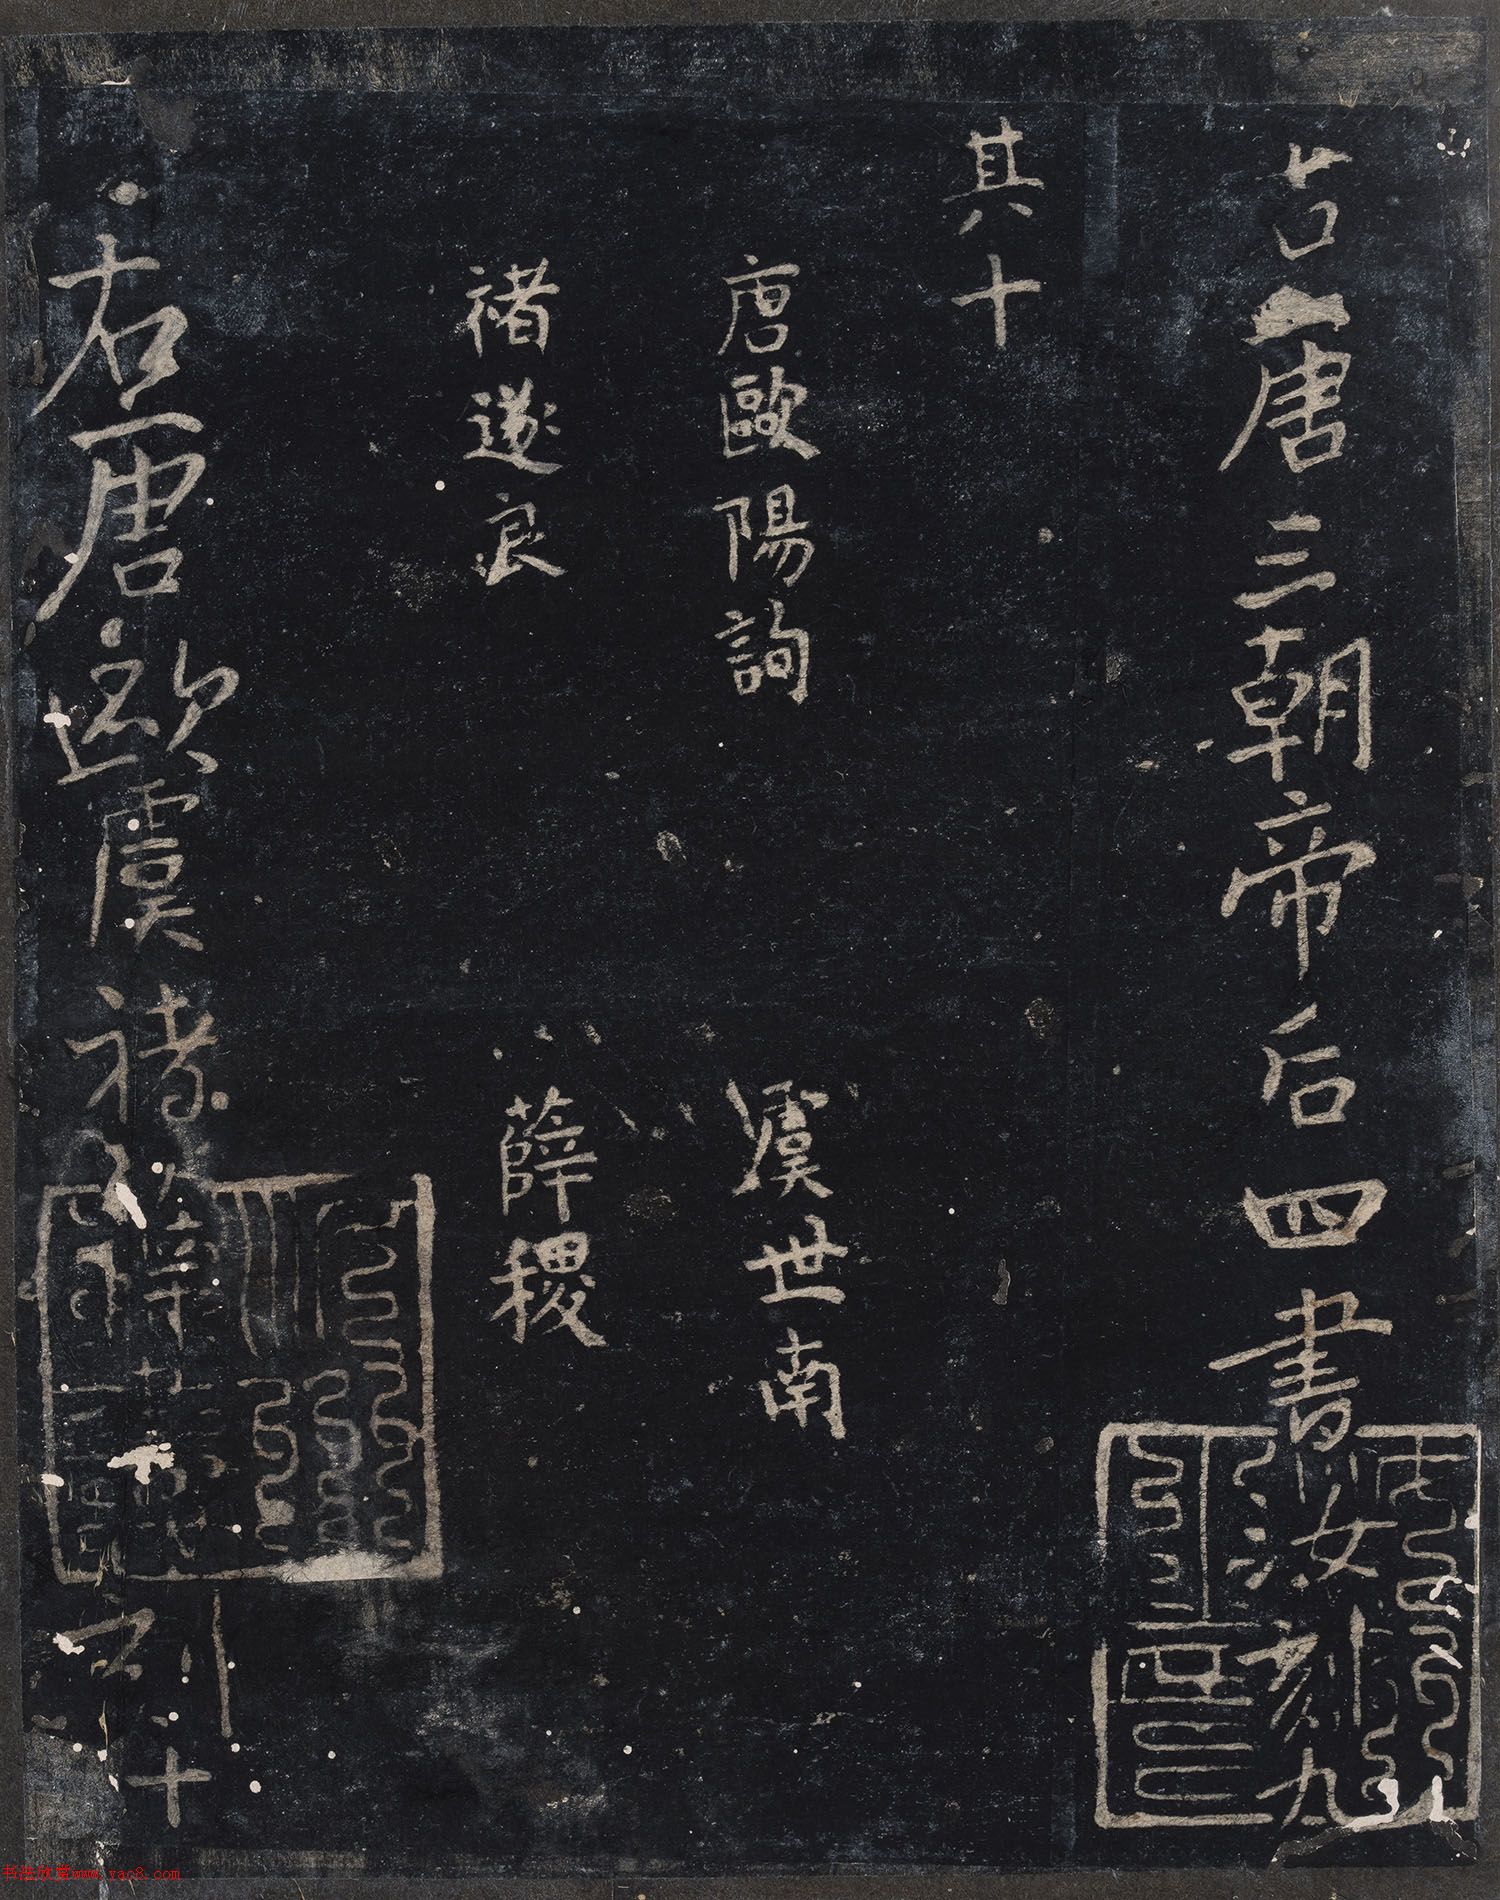 右唐三朝帝后四書汝刻九
其十
唐歐陽詢
虞世南
褚遂良
薛稷
右唐歐虞褚薛
刻十
书法欣赏www.yac8.com